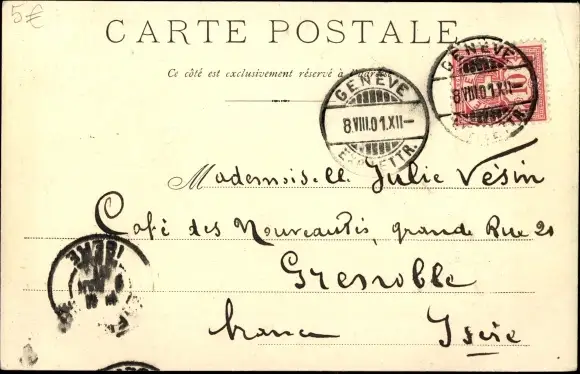 5€
CARTE POSTALE
Ce côté est exclusivement réservé à l'adresse
GENÈVE
8.VIII.01.XII—
EXP. LETTR.
GENÈVE
8.VIII.01.XII—
10
Mademoisell Julie Vésin
Café des Nouveautés, grande Rue 20
Grenoble
France Isère